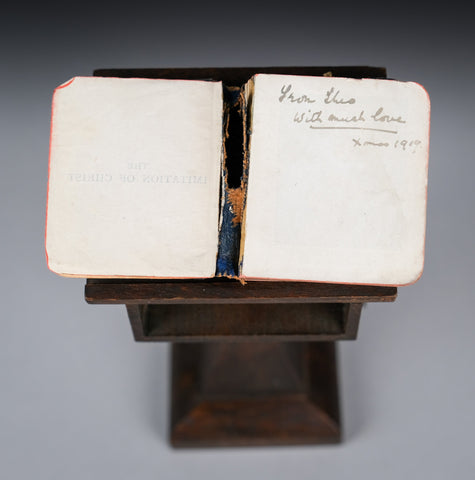 THE
IMITATION OF CHRIST
From Theo
With much love
Xmas 1919.